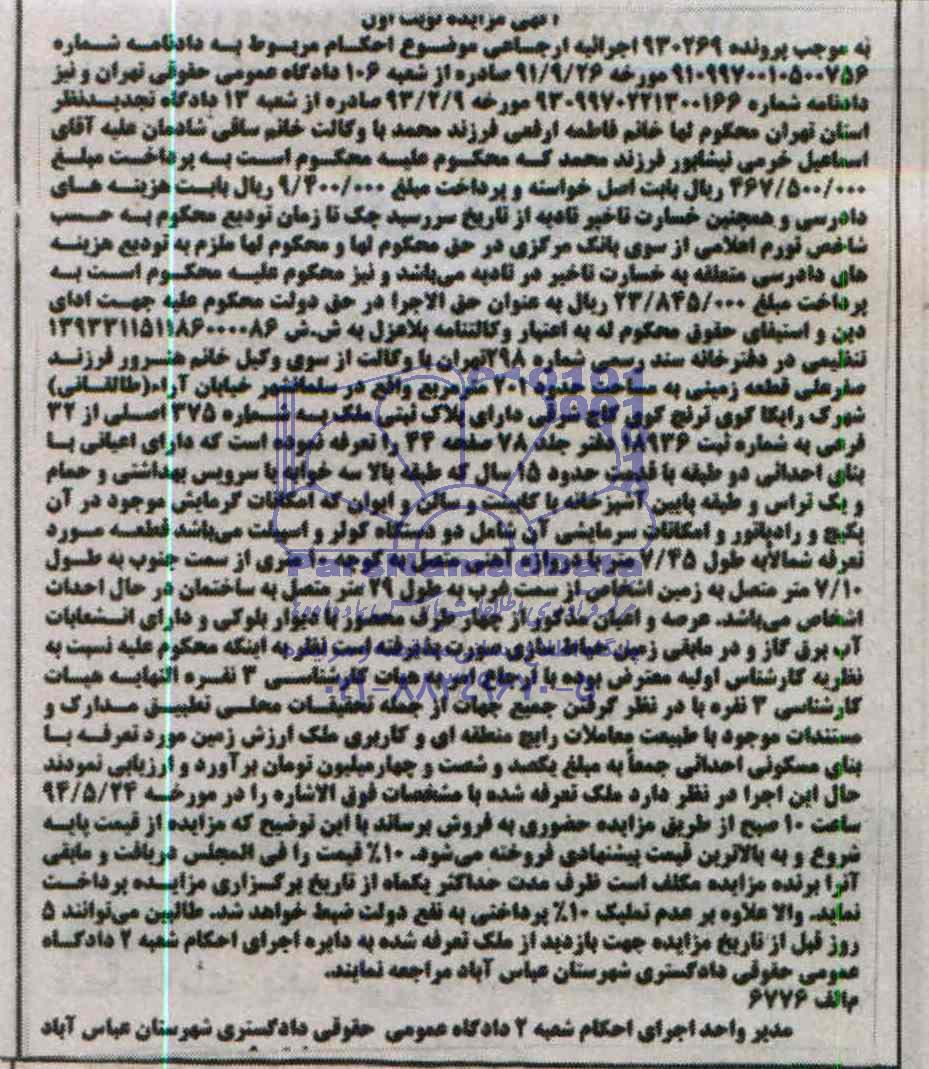 آگهی مزایده نوبت اول
به موجب پرونده ۹۳۰۲۶۹ اجرائیه ارجاعی موضوع احکام مربوط به دادنامه شماره
۹۱۰۹۹۷۰۰۱۰۵۰۰۷۵۶ مورخه ۹۱/۹/۲۶ صادره از شعبه ۱۰۶ دادگاه عمومی حقوقی تهران و نیز
دادنامه شماره ۹۳۰۹۹۷۰۲۲۱۳۰۰۱۶۶ مورخه ۹۳/۲/۹ صادره از شعبه ۱۳ دادگاه تجدیدنظر
استان تهران محکوم لها خانم فاطمه ارفعی فرزند محمد با وکالت خانم ساقی شادمان علیه آقای
اسماعیل خرمی نیشابور فرزند محمد که محکوم علیه محکوم است به پرداخت مبلغ
۴۶۷/۵۰۰/۰۰۰ ریال بابت اصل خواسته و پرداخت مبلغ ۹/۴۰۰/۰۰۰ ریال بابت هزینه های
دادرسی و همچنین خسارت تاخیر تادیه از تاریخ سررسید چک تا زمان تودیع محکوم به حسب
شاخص تورم اعلامی از سوی بانک مرکزی در حق محکوم لها و محکوم لها ملزم به تودیع هزینه
های دادرسی متعلقه به خسارت تاخیر در تادیه می‌باشد و نیز محکوم علیه محکوم است به
پرداخت مبلغ ۲۳/۸۴۵/۰۰۰ ریال به عنوان حق الاجرا در حق دولت محکوم علیه جهت ادای
دین و استیفای حقوق محکوم له به اعتبار وکالتنامه بلاعزل به ش.ش ۱۳۹۳۳۱۱۵۱۱۸۶۰۰۰۰۸۶
تنظیمی در دفترخانه سند رسمی شماره ۲۹۸تهران با وکالت از سوی وکیل خانم فرزند
صفرعلی قطعه زمینی به مساحت حدود مترمربع واقع در سلمانشهر خیابان آرام(طالقانی)
شهرک رایکا کوی ترنج کوی کاج شرقی دارای پلاک ثبتی ملک به شماره ۳۷۵ اصلی از ۳۲
فرعی به شماره ثبت ۱۸۹۳۶ دفتر جلد ۷۸ صفحه ۴۴ را تعرفه نموده است که دارای اعیانی با
بنای احداثی دو طبقه با قدمت حدود ۱۵ سال که طبقه بالا سه خوابه با سرویس بهداشتی و حمام
و یک تراس و طبقه پایین آشپزخانه با کابینت و سالن و ایوان که امکانات گرمایش موجود در آن
پکیج و رادیاتور و امکانات سرمایشی آن شامل دو دستگاه کولر و اسپلت می‌باشد قطعه مورد
تعرفه شمالاً به طول ۷/۴۵ متر با دروازه آهنی متصل به کوچه متری از سمت جنوب به طول
۷/۱۰ متر متصل به زمین اشخاص از سمت غرب به طول ۲۹ متر متصل به ساختمان در حال احداث
اشخاص می‌باشد. عرصه و اعیان مذکور از چهار طرف محصور با دیوار بلوکی و دارای انشعابات
آب برق گاز و در مابقی زمین محوطه سازی صورت پذیرفته است نظر به اینکه محکوم علیه نسبت به
نظریه کارشناس اولیه معترض بوده با ارجاع امر به هیات کارشناسی ۳ نفره النهایه هیات
کارشناسی ۳ نفره با در نظر گرفتن جمیع جهات از جمله تحقیقات محلی تطبیق مدارک و
مستندات موجود با طبیعت معاملات رایج منطقه ای و کاربری ملک ارزش زمین مورد تعرفه با
بنای مسکونی احداثی جمعاً به مبلغ یکصد و شصت و چهارمیلیون تومان برآورد و ارزیابی نمودند
حال این اجرا در نظر دارد ملک تعرفه شده با مشخصات فوق الاشاره را در مورخه ۹۴/۵/۲۴
ساعت ۱۰ صبح از طریق مزایده حضوری به فروش برساند با این توضیح که مزایده از قیمت پایه
شروع و به بالاترین قیمت پیشنهادی فروخته می‌شود. ۱۰٪ قیمت را فی المجلس دریافت و مابقی
آنرا برنده مزایده مکلف است ظرف مدت حداکثر یکماه از تاریخ برگزاری مزایده پرداخت
نماید. والا علاوه بر عدم تملیک ۱۰٪ پرداختی به نفع دولت ضبط خواهد شد. طالبین می‌توانند ۵
روز قبل از تاریخ مزایده جهت بازدید از ملک تعرفه شده به دایره اجرای احکام شعبه ۲ دادگاه
عمومی حقوقی دادگستری شهرستان عباس آباد مراجعه نمایند.
م/الف ۶۷۷۶
مدیر واحد اجرای احکام شعبه ۲ دادگاه عمومی حقوقی دادگستری شهرستان عباس آباد
ParsNamadData
۰۲۱-۸۸۳۴۹۶۷۰-۵